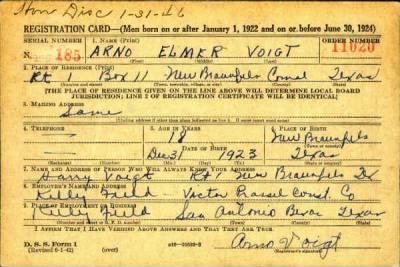 Hon Disc 1-31-46
REGISTRATION CARD—(Men born on or after January 1, 1922 and on or before June 30, 1924)
SERIAL NUMBER 1. NAME (Print) ORDER NUMBER
N 185 ARNO ELMER VOIGT 11020
(First) (Middle) (Last)
2. PLACE OF RESIDENCE (Print)
Rt Box 11 New Braunfels Comal Texas
[THE PLACE OF RESIDENCE GIVEN ON THE LINE ABOVE WILL DETERMINE LOCAL BOARD
JURISDICTION; LINE 2 OF REGISTRATION CERTIFICATE WILL BE IDENTICAL]
3. MAILING ADDRESS
Same
[Mailing address if other than place indicated on line 2. If same insert word same]
4. TELEPHONE 5. AGE IN YEARS 6. PLACE OF BIRTH
18 New Braunfels
DATE OF BIRTH
Dec 31 1923 Texas
(Exchange) (Number) (Mo.) (Day) (Yr.) (State or country)
7. NAME AND ADDRESS OF PERSON WHO WILL ALWAYS KNOW YOUR ADDRESS
Harry Voigt Rt New Braunfels Tx
8. EMPLOYER'S NAME AND ADDRESS
Kelly Field Victor Const. Co
9. PLACE OF EMPLOYMENT OR BUSINESS
Kelly Field San Antonio Bexar Texas
(Number and street or R. F. D. number) (Town) (County) (State)
I AFFIRM THAT I HAVE VERIFIED ABOVE ANSWERS AND THAT THEY ARE TRUE.
D. S. S. Form 1
(Revised 6-1-42) (over) Arno Voigt
(Registrant's signature)